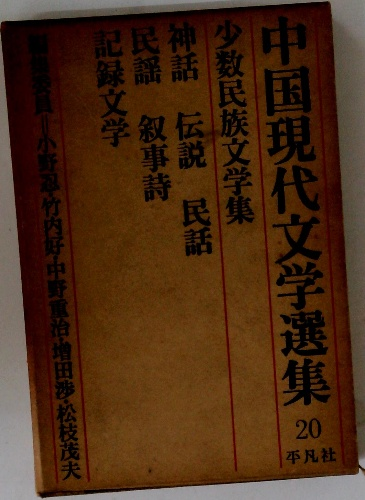 中国現代文学選集
20
平凡社
少数民族文学集
神話 伝説 民話
民謡 叙事詩
記録文学
編集委員=小野忍・竹内好・中野重治・増田渉・松枝茂夫